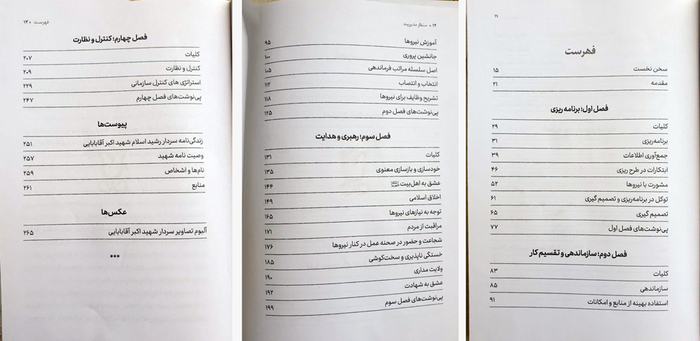 ۱۱
فهرست
سخن نخست ۱۵
مقدمه ۲۱
فصل اول: برنامه ریزی
کلیات ۲۹
برنامه‌ریزی ۳۱
جمع‌آوری اطلاعات ۳۹
ابتکارات در طرح ریزی ۴۶
مشورت با نیروها ۵۲
توکل در برنامه‌ریزی و تصمیم گیری ۶۱
تصمیم گیری ۶۵
پی‌نوشت‌های فصل اول ۷۷
فصل دوم: سازماندهی و تقسیم کار
کلیات ۸۳
سازماندهی ۸۵
استفاده بهینه از منابع و امکانات ۹۱
۱۲ • سنگر مدیریت
آموزش نیروها ۹۵
جانشین پروری ۱۰۰
اصل سلسله مراتب فرماندهی ۱۰۵
انتخاب و انتصاب ۱۱۲
تشریح وظایف برای نیروها ۱۱۸
پی‌نوشت‌های فصل دوم ۱۲۵
فصل سوم: رهبری و هدایت
کلیات ۱۳۱
خودسازی و بازسازی معنوی ۱۳۵
عشق به اهل‌بیت ۱۴۴
اخلاق اسلامی ۱۴۹
توجه به نیازهای نیروها ۱۶۵
مراقبت از مردم ۱۷۱
شجاعت و حضور در صحنه عمل در کنار نیروها ۱۷۶
خستگی ناپذیری و سخت‌کوشی ۱۸۵
ولایت مداری ۱۹۰
عشق به شهادت ۱۹۲
پی‌نوشت‌های فصل سوم ۱۹۹
فهرست • ۱۳
فصل چهارم: کنترل و نظارت
کلیات ۲۰۷
کنترل و نظارت ۲۰۹
استراتژی های کنترل سازمانی ۲۲۹
پی‌نوشت‌های فصل چهارم ۲۴۷
پیوست‌ها
زندگی‌نامه سردار رشید اسلام شهید اکبر آقابابایی ۲۵۱
وصیت نامه شهید ۲۵۷
نام‌ها و اشخاص ۲۵۹
منابع ۲۶۱
عکس‌ها
آلبوم تصاویر سردار شهید اکبر آقابابایی ۲۶۵
•••